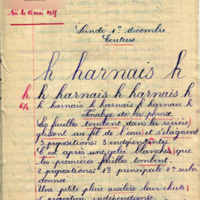 Né le 18 mai
Lundi 1er décembre
Écriture
h harnais h
h h harnais harnais h
6/10 h harnais harnais harnais h
Analyse de la phrase
Les feuilles tombent dans la rivière,
glissent au fil de l'eau et s'éloignent
3 propositions indépendantes
C'est après une gelée blanche que
les premières feuilles tombent
2 propositions 1° principale 2° subor
donnée
Une petite pluie accélère leur chute
proposition indépendante